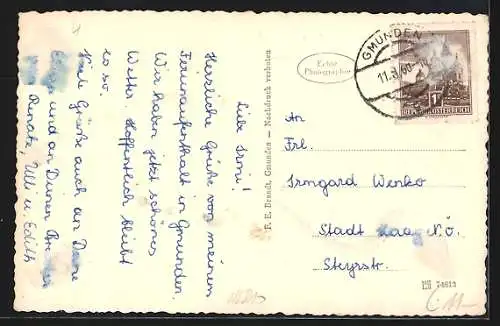 Liebe Irmi!
Herzliche Grüße von meinem
Ferienaufenthalt in Gmunden.
Wir haben jetzt schönes
Wetter. Hoffentlich bleibt
es so.
Viele Grüße auch an Deine
und an Deinen
Renate, Ulli u. Edith
P. E. Brandt, Gmunden – Nachdruck verboten
Echte
Photographie
GMUNDEN
11.8.60
REPUBLIK ÖSTERREICH
An
Frl.
Irmgard Wenko
Stadt Haag N.Ö.
Steyrstr.